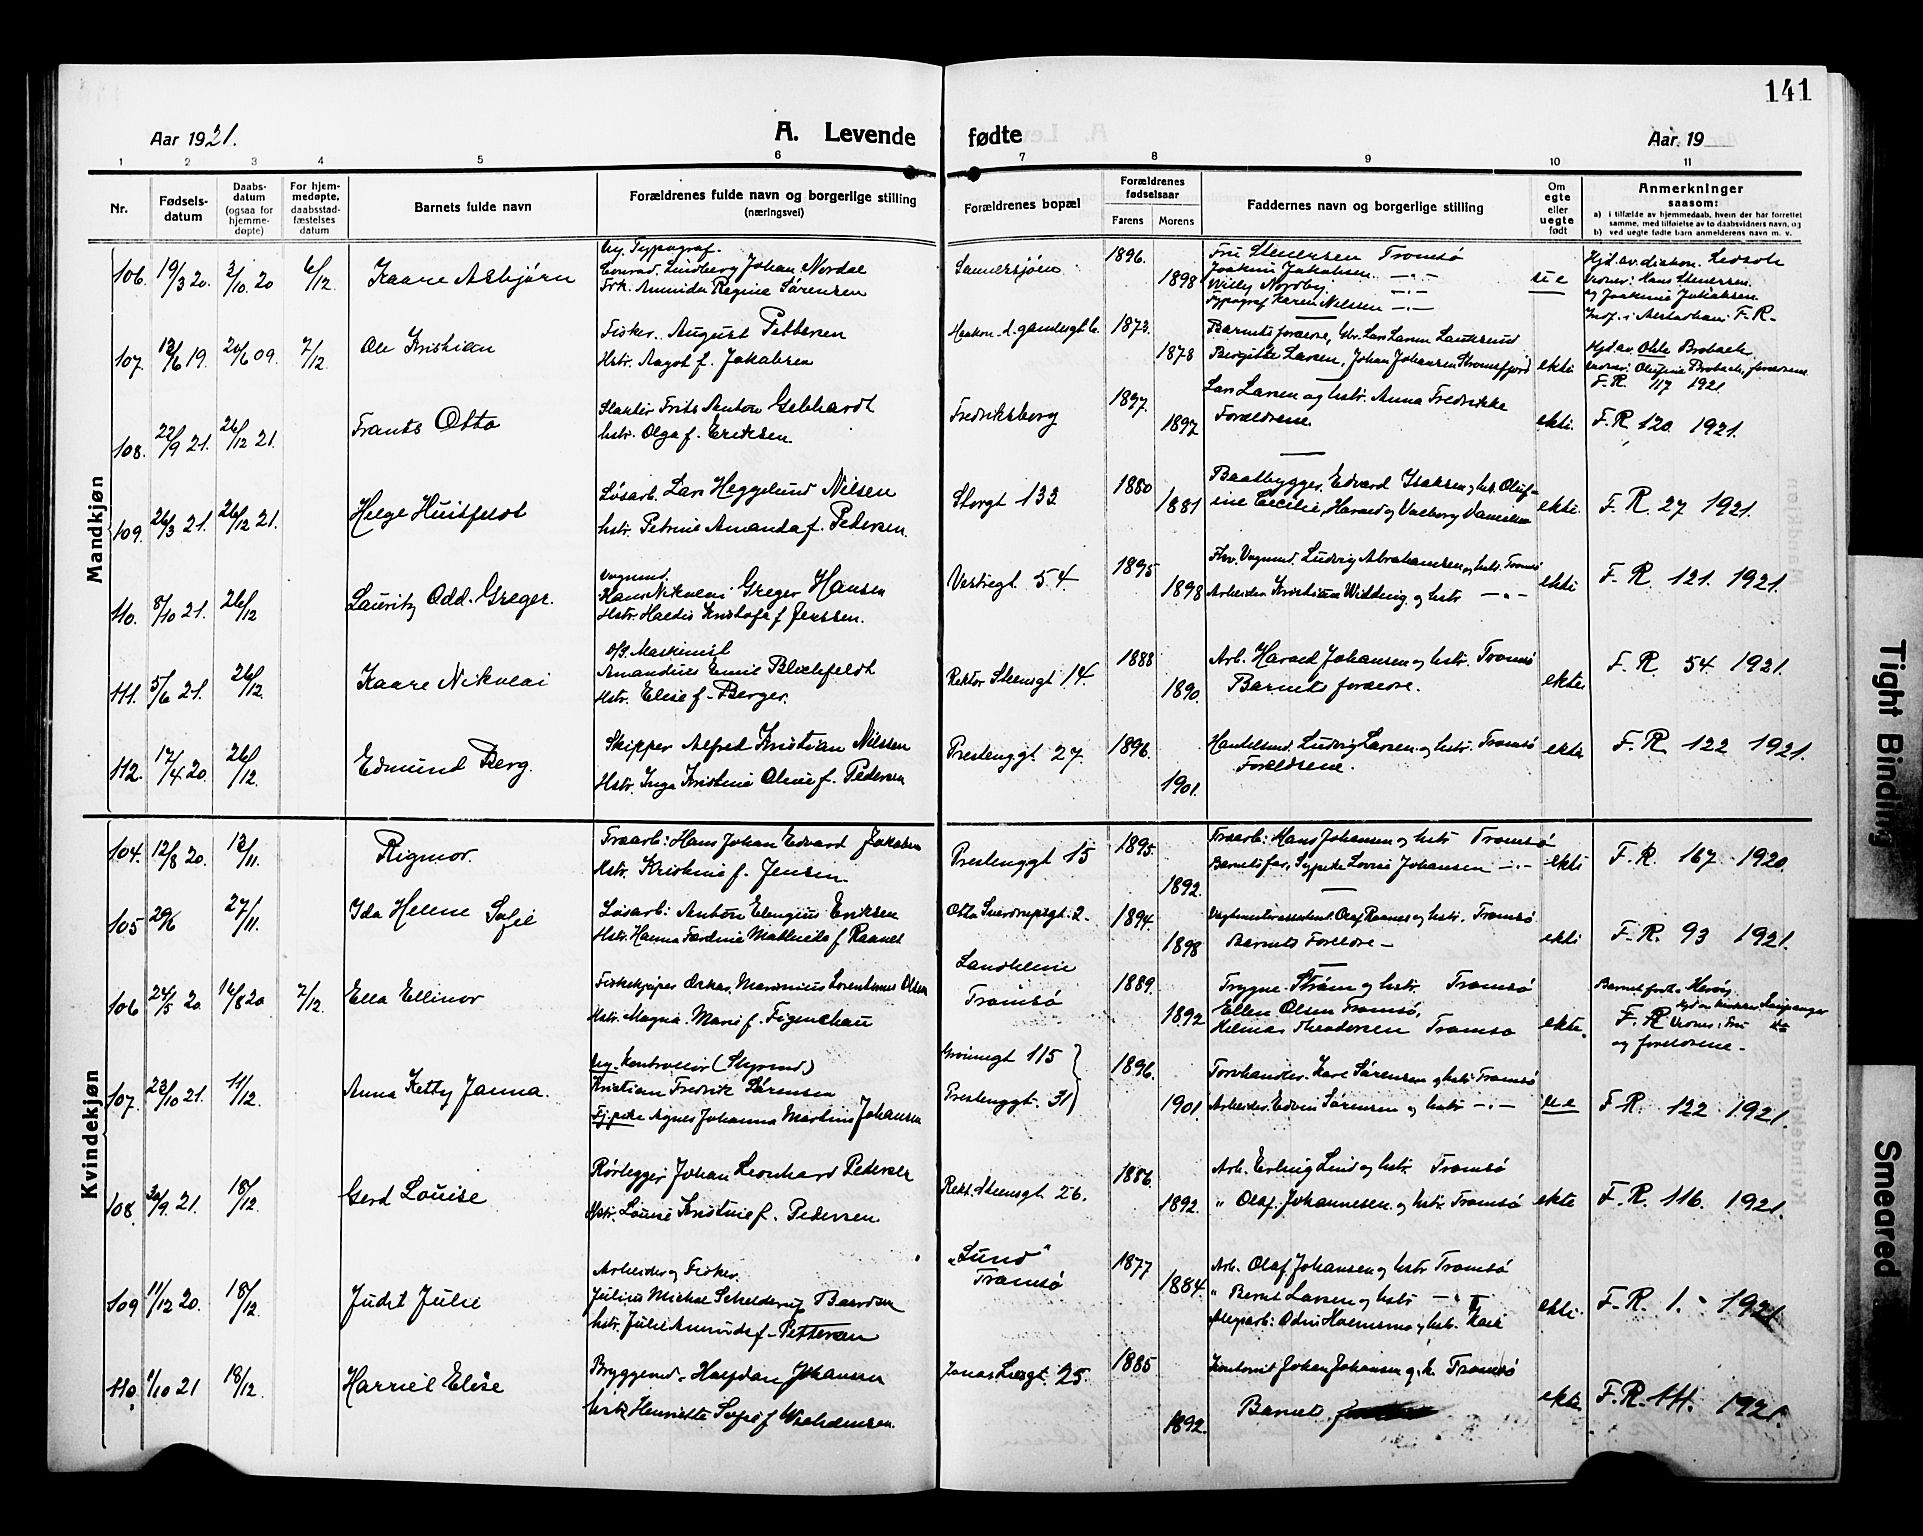 141
Aar 1921.
A. Levende fødte
Aar 19
1 2 3 4 5 6 7 8 9 10 11
Nr.
Fødsels-
datum
Daabs-
datum
(ogsaa for
hjemme-
døpte)
For hjem-
medøpte,
daabsstad-
fæstelses
datum
Barnets fulde navn
Forældrenes fulde navn og borgerlige stilling
(næringsvei)
Forældrenes bopæl
Forældrenes
fødselsaar
Farens Morens
Faddernes navn og borgerlige stilling
Om
egte
eller
uegte
født
Anmerkninger
saasom:
a) i tilfælde av hjemmedaab, hvem der har forrettet
samme, med tilføielse av to daabsvidners navn, og
b) ved uegte fødte barn anmelderens navn m. v.
Mandkjøn
106. 19/3 20. 3/10 20 6/12 Kaare Asbjørn
Ug. Typograf.
Conrad Lindberg Johan Nordal
Frk. Amunda Regine Sørensen
1896. 1898
Fru Stenersen Tromsø
Joakim Jakobsen
Willy Nordby
Typograf Karen Nilssen
u e
107. 13/6 19. 20/6 09. 7/12 Ole Kristian
Fisker. August Pettersen
Hstr. Aagot f. Jakobsen
1873. 1878
Bergitte Larsen, Johan Johansen
ekte
F.R. 117 1921
108. 22/9 21. 26/12 21. Frants Otto
Slakter Frits Anton Gebhardt
hstr. Olga f. Eriksen.
Fredriksborg
1897. 1897
Lars Larsen og hstr. Anna Fredrikke
Forældrene.
ekte.
F.R. 120 1921.
109. 26/3 21. 26/12 21. Helge Huitfeldt
Løsarb. Lars Heggelund Nilsen
hstr. Petrine Amanda f. Pedersen.
Storgt 133
1880 1881
Baatbygger Edvard Isaksen og hst. Oluf-
ine Cecilie, Harald og Valborg
ekte.
F.R. 27 1921.
110. 8/10 21. 26/12 Lauritz Odd. Greger.
Vognmd.
Hans Nikolai Greger Hansen
Hstr. Haldis Kristofa f Jenssen.
Vestregt 54
1895 1898
Vognmd. Ludvig Abrahamsen og hstr. Tromsø
Arbeider Kristian Widding og hstr
ekte
F. R. 121. 1921.
111. 5/6 21. 26/12. Kaare Nikolai
D/S. Maskinist
Amandus Emil Blichfeldt
Hstr. Elise f. Berger.
Rektor Steensgt 14.
1888 1890.
Arb. Harald Johansen og hstr. Tromsø
Barnets forældre.
ekte
F. R. 54 1921.
112. 17/4 20. 26/12. Edmund Berg.
Skipper Alfred Kristian Nilssen
Hstr. Inga Kristine Oline f. Pedersen
Prestenggt. 27
1896. 1901.
Handelsmd. Ludvig Larsen og hstr. Tromsø
Forældrene.
ekte
F.R. 122 1921.
Kvindekjøn
104. 12/8 20. 13/11. Rigmor.
Træarb: Hans Johan Edvard Jakobsen
Hstr. Kristine f. Jensen.
Prestenggt 15
1895. 1892.
Træarb: Hans Johansen og hstr Tromsø
Barnets far, Sypike Lovise Johansen
ekte
F. R. 167 1920.
105 29/6 27/11. Ida Helene Sofie
Løsarb: Anton Elingius Eriksen
Hstr. Hanna Færdine Mathilde f Raanes
Otto Sverdrupsgt. 2.
1894. 1898
Olaf Raanes og hstr. Tromsø
Barnets Foreldre
ekte
F.R. 93 1921.
106 24/5 20. 16/8 20 7/12. Ella Ellinor
Fiskekjøper Oskar Marsinius Lorentinus Olsen
Hstr. Magna Marie f. Figenschau
Landheim
Tromsø
1889. 1892
Trygve Strøm og hstr. Tromsø
Ellen Olsen Tromsø,
Hilmar Theodorsen Tromsø
ekte.
F. R.
og foreldrene.
107. 23/10 21. 11/12. Anna Ketty Janna.
Ug. Kontrollør (Styrmd.)
Kristian Fredrik Sørensen
Pike Agnes Johanna Martine Johansen
Grønnegt 115
Prestenggt. 31
1896. 1901
Torvhandler. Karl Sørensen og hstr Tromsø
Arbeider. Edvin Sørensen og hstr
u e
F. R. 122 1921.
108. 30/9 21. 18/12. Gerd Louise
Rørlegger Johan Leonhard Pedersen
Hstr. Louise Kristine f. Pedersen.
Rekt. Steensgt. 26.
1886. 1892.
Arb. Erling Lind og hstr. Tromsø
" Olaf Johannesen og hstr. Tromsø
ekte
F. R. 116. 1921.
109 11/12 20. 18/12. Judit Julie
Arbeider og Fisker.
Julius Mikal Schelderup Baardsen
hstr. Julie Amunda f. Pettersen
"Lund"
Tromsø
1877 1884.
Arb. Olaf Johansen og hstr Tromsø
" Bernt Larsen og hstr
ekte.
F. R. 1. - 1921
110. 1/10 21 18/12. Harriet Elise
Bryggemd. Halfdan Johansen
hstr Henriette Sofie f Wilhelmsen.
Jonas Liesgt. 25.
1885 1892.
Kontorist Johan Johansen og h. Tromsø
Barnets
ekte.
F. R. 111. 1921.
Tight Binding
Smeared